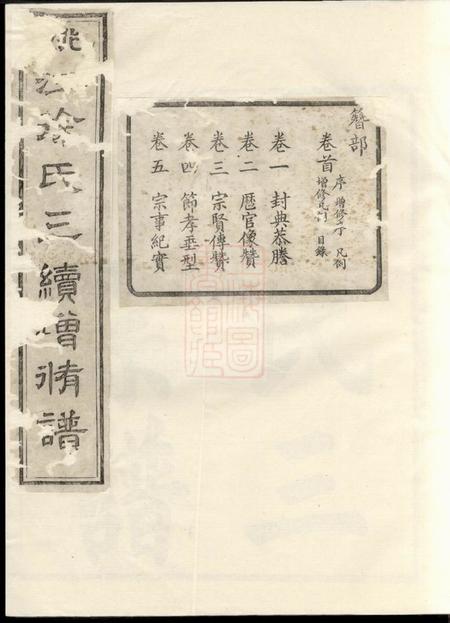 簪部
卷首 序 增修序 凡例
增修凡例 目錄
卷一 封典恭謄
卷二 歷官像贊
卷三 宗賢傳贊
卷四 節孝垂型
卷五 宗事紀實
氏三續增脩譜
上海圖書館藏